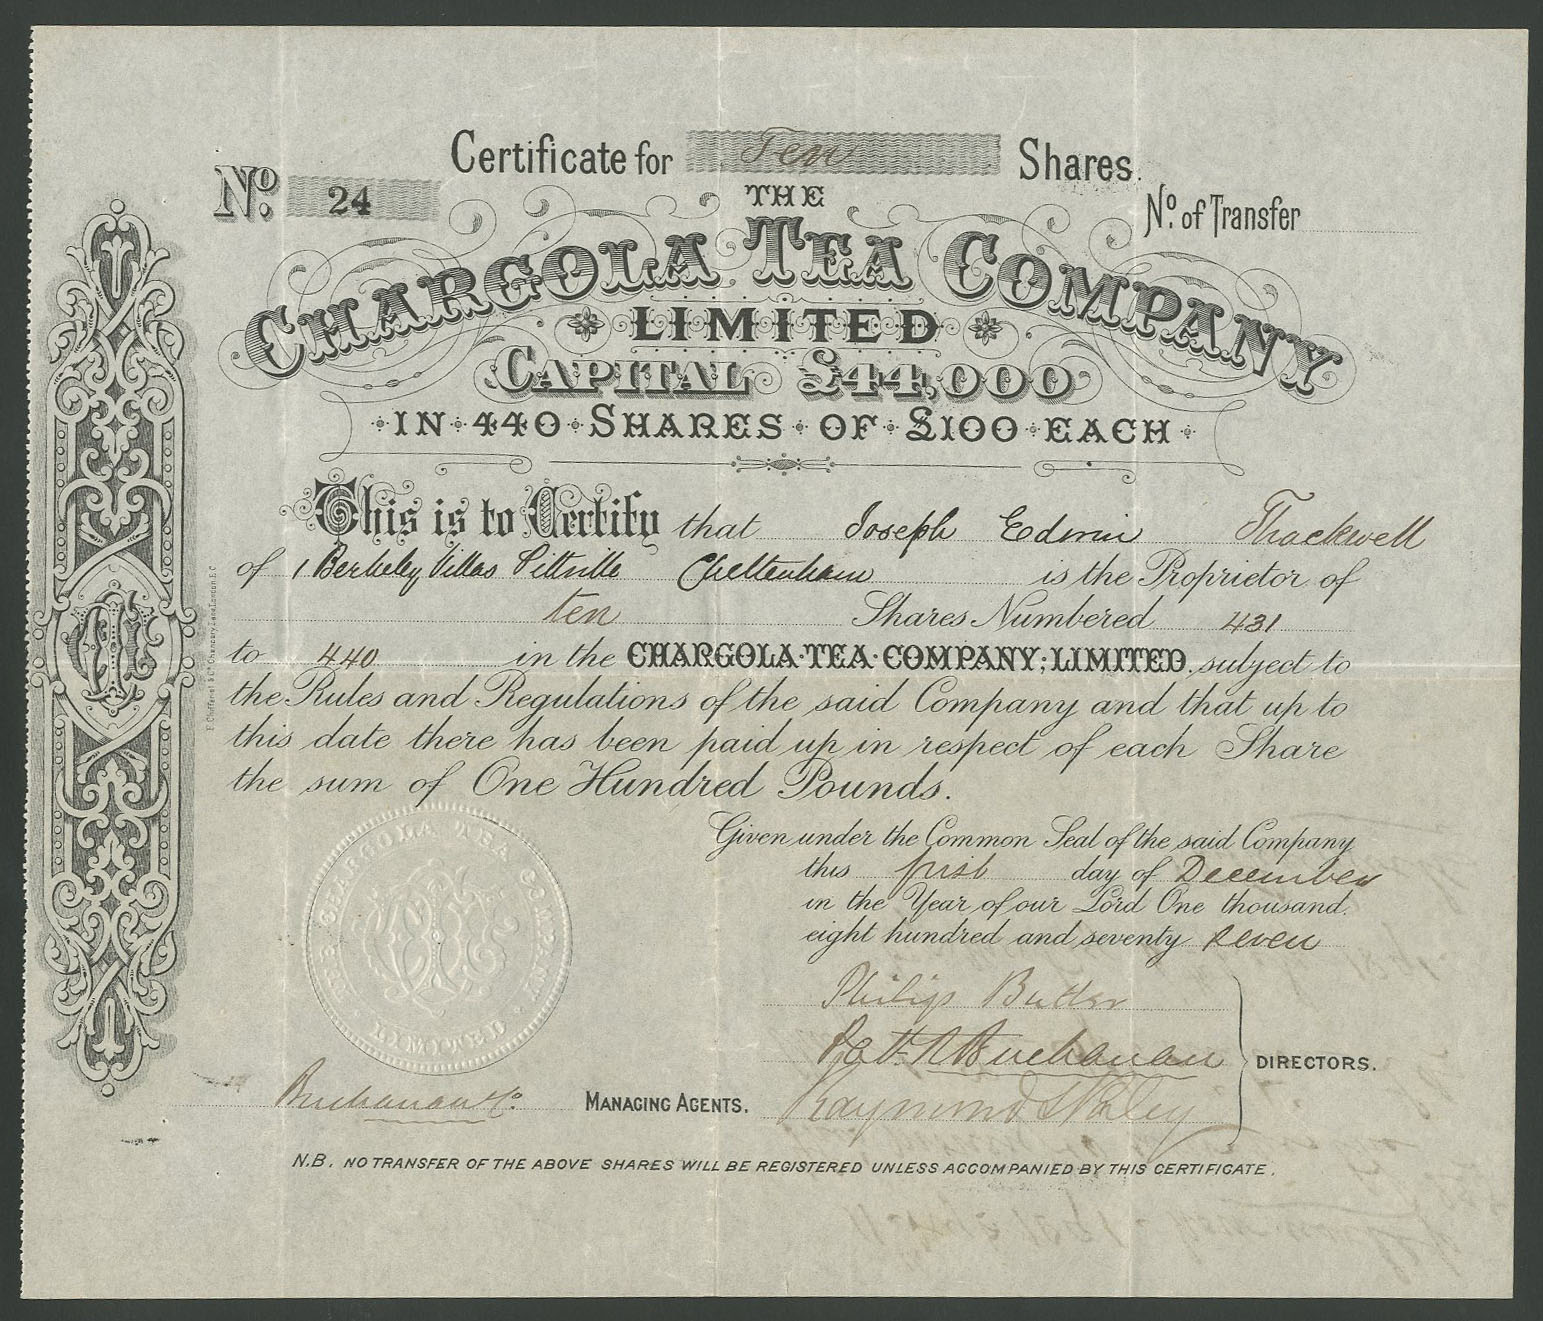 Certificate for Ten Shares.
No. 24
No. of Transfer
THE
CHARGOLA TEA COMPANY
LIMITED
CAPITAL £44,000
IN 440 SHARES OF £100 EACH
This is to Certify that Joseph Edwin Thackwell
of 1 Berkeley Villas Pittville Cheltenham is the Proprietor of
ten Shares Numbered 431
to 440 in the CHARGOLA TEA COMPANY, LIMITED, subject to
the Rules and Regulations of the said Company and that up to
this date there has been paid up in respect of each Share
the sum of One Hundred Pounds.
Given under the Common Seal of the said Company
this first day of December
in the Year of our Lord One thousand
eight hundred and seventy seven
THE CHARGOLA TEA COMPANY
LIMITED
Philip Butler
Buchanan
Raymond
DIRECTORS.
Buchanan & Co. MANAGING AGENTS.
N.B. NO TRANSFER OF THE ABOVE SHARES WILL BE REGISTERED UNLESS ACCOMPANIED BY THIS CERTIFICATE.